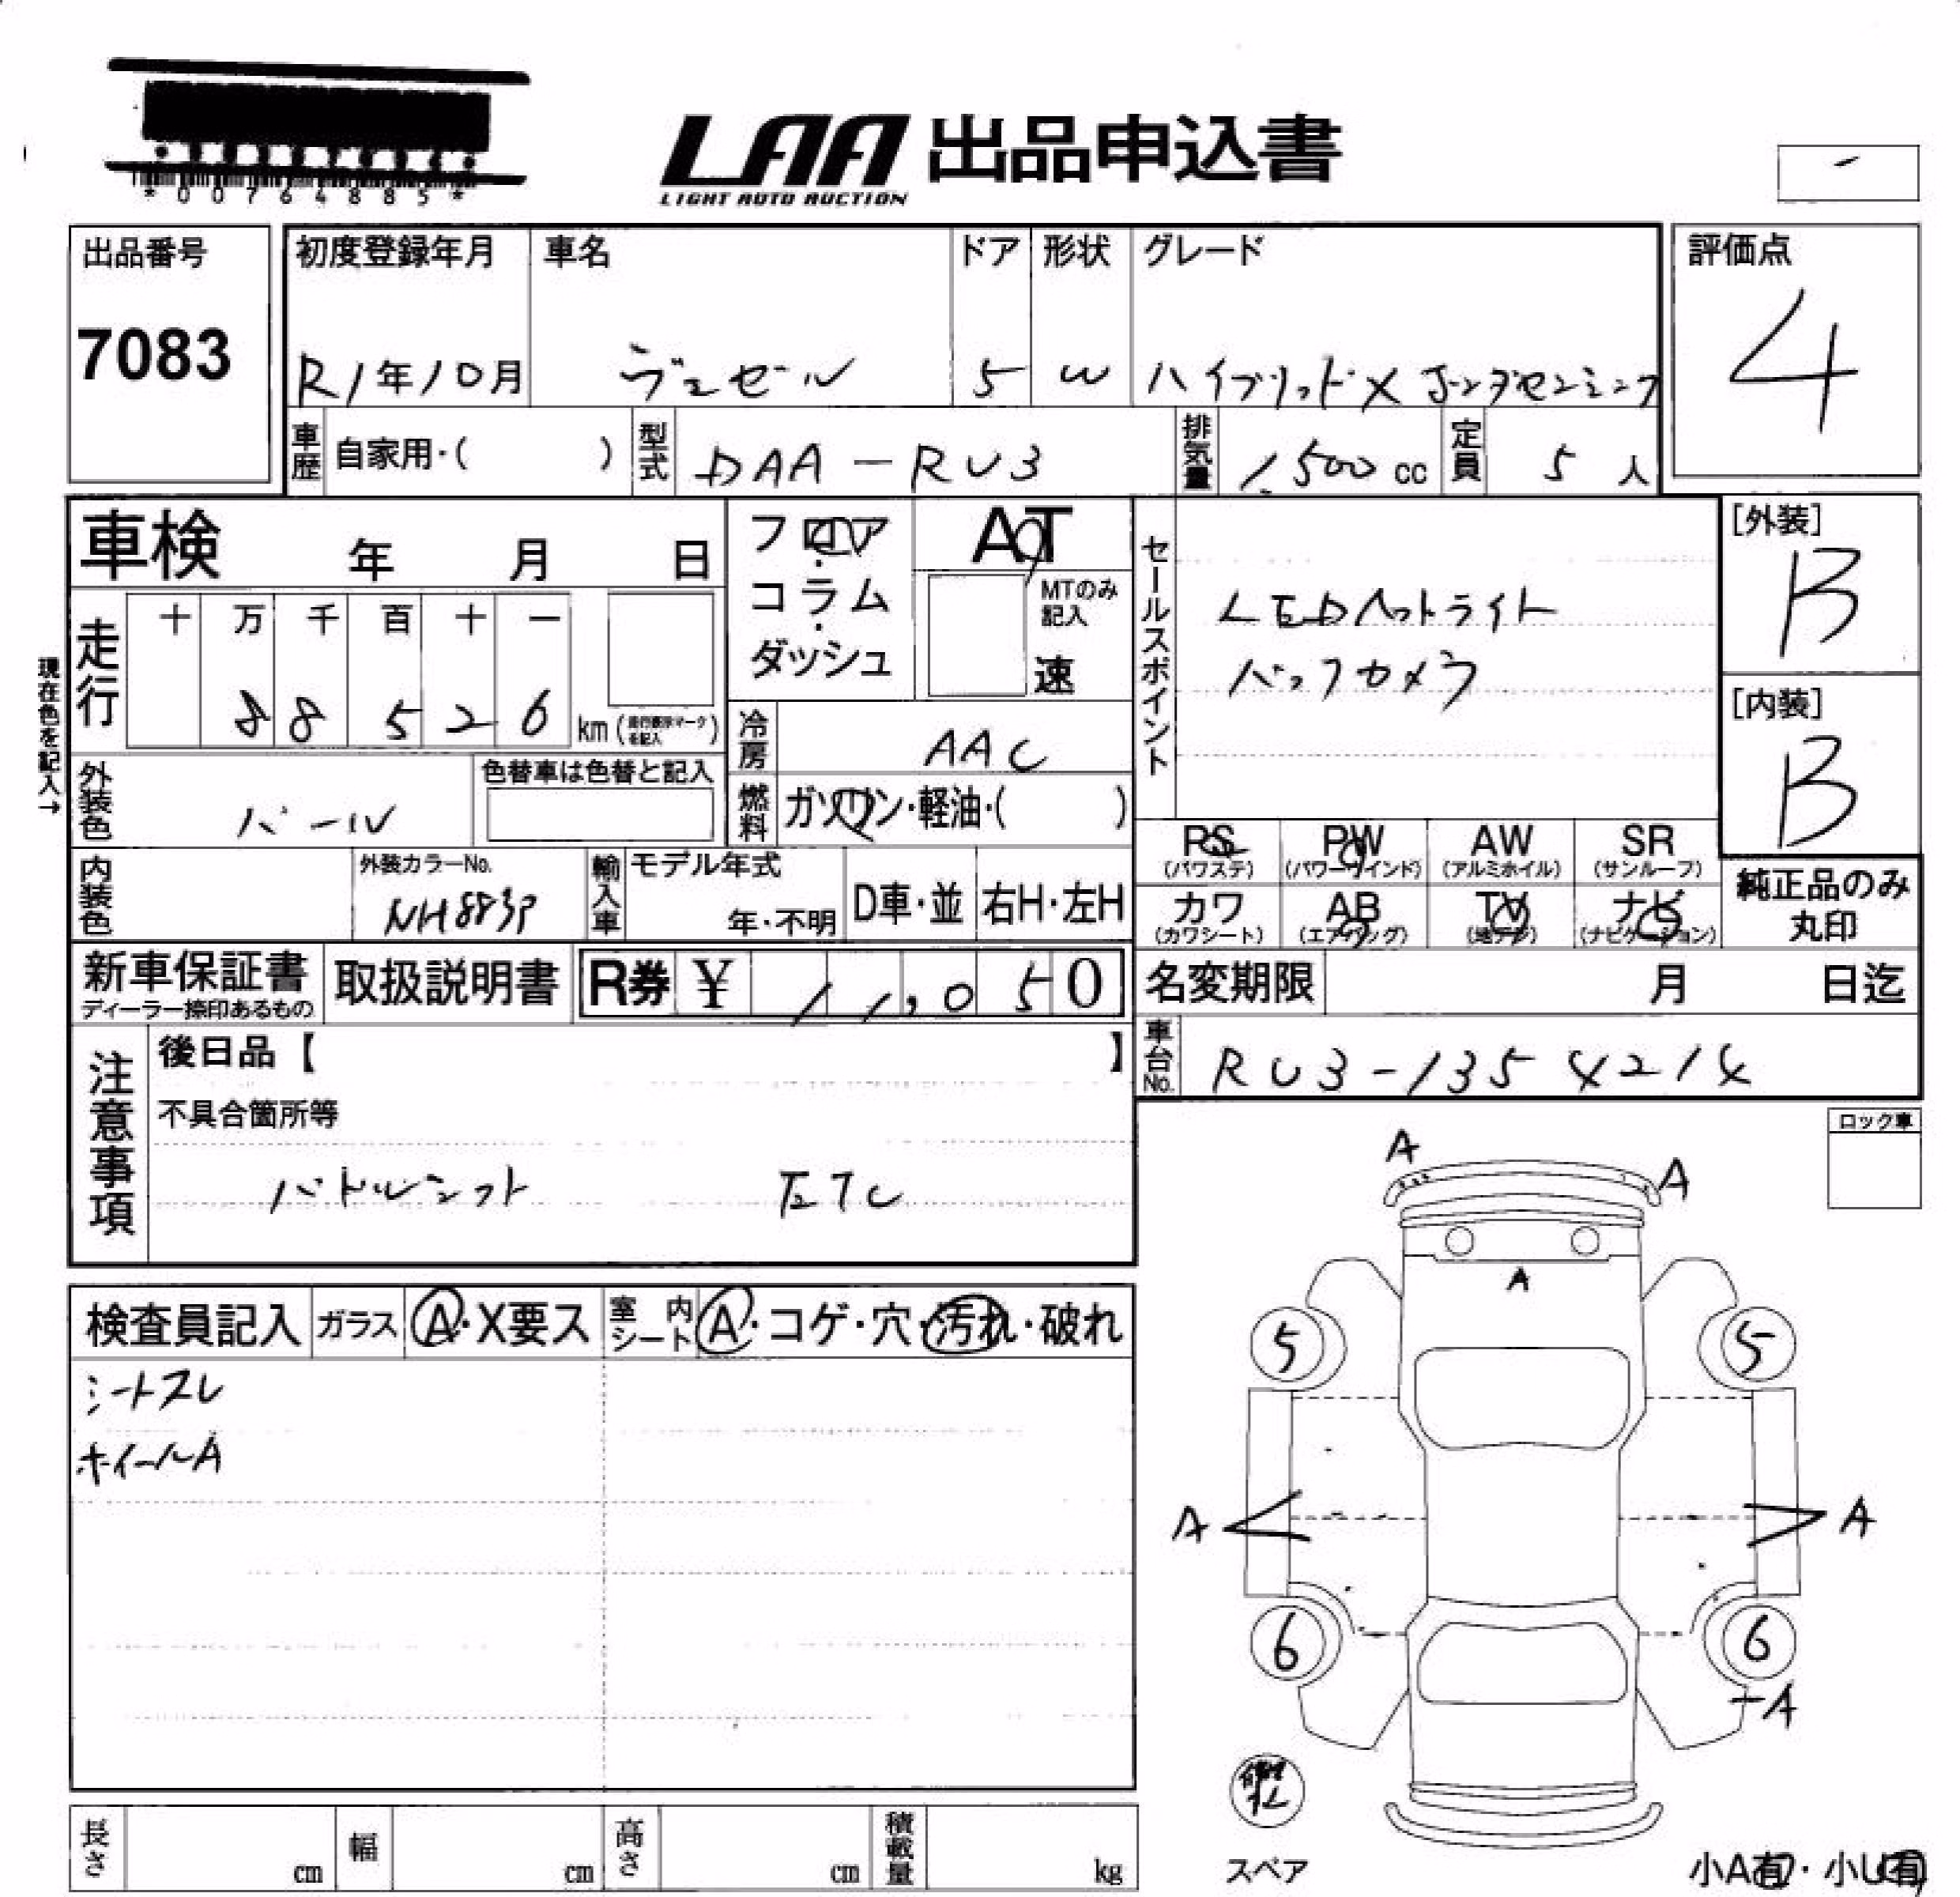 *00764885*
LAA 出品申込書
LIGHT AUTO AUCTION
出品番号
7083
初度登録年月
R1年10月
車名
ヴェゼル
ドア
5
形状
W
グレード
ハイブリッドX ホンダセンシング
評価点
4
車歴 自家用・( )
型式 DAA-RU3
排気量 1,500 cc
定員 5 人
車検 年 月 日
フロア・コラム・ダッシュ
AT
MTのみ記入
速
セールスポイント
LEDヘットライト
バックカメラ
[外装]
B
[内装]
B
現在色を記入→
走行
十 万 千 百 十 一
8 8 5 2 6 km (走行表示マークを記入)
冷房 AAC
外装色 パール
色替車は色替と記入
燃料 ガソリン・軽油・( )
内装色
外装カラーNo.
NH883P
輸入車
モデル年式
年・不明
D車・並
右H・左H
PS (パワステ)
PW (パワーウインド)
AW (アルミホイル)
SR (サンルーフ)
カワ (カワシート)
AB (エアバッグ)
TV (地デジ)
ナビ (ナビゲーション)
純正品のみ丸印
新車保証書
ディーラー捺印あるもの
取扱説明書
R券 ¥ 11,050
名変期限 月 日迄
車台No. RU3-1354214
注意事項
後日品【 】
不具合箇所等
パドルシフト ETC
ロック車
検査員記入
ガラス A・X要ス
室内シート A・コゲ・穴・汚れ・破れ
シートスレ
ホイールA
A
A
A
5
5
A
A
6
6
A
修理キット
スペア
小A有・小U有
長さ cm
幅 cm
高さ cm
積載量 kg